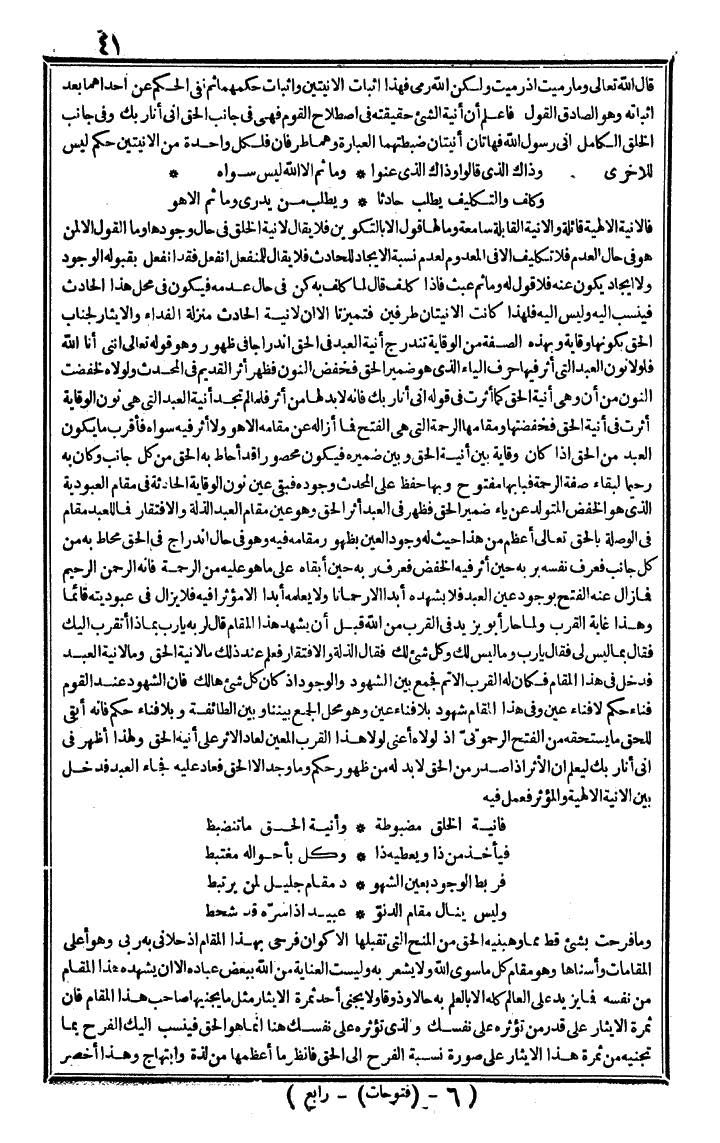 ٤١
قال الله تعالى وما رميت اذ رميت ولكن الله رمى فهذا اثبات الانيتين واثبات حكمهما ثم نفى الحكم عن احداهما بعد
اثباته وهو الصادق القول فاعلم أن أنية الشئ حقيقته فى اصطلاح القوم فهى فى جانب الحق انى أنا ربك وفى جانب
الخلق الكامل انى رسول الله فهاتان أنيتان ضبطتهما العبارة وهما طرفان فلكل واحدة من الانيتين حكم ليس
للاخرى . وذاك الذى قالوا وذاك الذى عنوا * وما ثم الا الله ليس سواه *
وكاف والتكليف يطلب حادثا * ويطلب من يدرى وما ثم الا هو
فالانية الالهية قائلة والانية القابلة سامعة وما لها قول الا بالتكوين فلا يقال لانية الخلق فى حال وجودها وما القول الا لمن
هو فى حال العدم فلا تكليف الا فى المعدوم لعدم نسبة الايجاد للحادث فلا يقال للمنفعل انفعل فقد انفعل بقبوله الوجود
ولا ايجاد يكون عنه فلا قول له وما ثم عبث فاذا كلف قال لما كلف به كن فى حال عدمه فيكون فى محل هذا الحادث
فينسب اليه وليس اليه فلهذا كانت الانيتان طرفين فتميزتا الا ان لانية الحادث منزلة الفداء والايثار لجناب
الحق بكونها وقاية وبهذه الصفة من الوقاية تندرج أنية العبد فى الحق اندراجا فى ظهور وهو قوله تعالى اننى أنا الله
فلولا نون العبد التى أثر فيها حرف الياء الذى هو ضمير الحق فخفض النون فظهر أثر القديم فى المحدث ولولاه لخفضت
النون من أن وهى أنية الحق كما أثرت فى قوله انى أنا ربك فانه لابد لها من أثر فلما لم تجد أنية العبد التى هى نون الوقاية
أثرت فى أنية الحق فخفضتها ومقامها الرحمة التى هى الفتح فما أزاله عن مقامه الا هو ولا أثر فيه سواه فأقرب ما يكون
العبد من الحق اذا كان وقاية بين أنية الحق وبين ضميره فيكون محصورا قد أحاط به الحق من كل جانب وكان به
رحيما لبقاء صفة الرحمة فبابها مفتوح وبها حفظ على المحدث وجوده فبقى عين نون الوقاية الحادثة فى مقام العبودية
الذى هو الخفض المتولد عن ياء ضمير الحق فظهر فى العبد أثر الحق وهو عين مقام العبد الذلة والافتقار فما للعبد مقام
فى الوصلة بالحق تعالى أعظم من هذا حيث له وجود العين بظهور مقامه فيه وهو فى حال اندراج فى الحق محاط به من
كل جانب فعرف نفسه بربه حين أثر فيه الخفض فعرف ربه حين أبقاه على ما هو عليه من الرحمة فانه الرحمن الرحيم
فما زال عنه الفتح بوجود عين العبد فلا يشهده أبدا الا رحمانا ولا يعلمه أبدا الا مؤثرا فيه فلا يزال فى عبوديته قائما
وهذا غاية القرب ولما حار أبو يزيد فى القرب من الله قبل أن يشهد هذا المقام قال لربه يارب بماذا أتقرب اليك
فقال بما ليس لى فقال يارب وما ليس لك وكل شئ لك فقال الذلة والافتقار فعلم عند ذلك ما لانية الحق وما لانية العبد
فدخل فى هذا المقام فكان له القرب الاتم فجمع بين الشهود والوجود اذ كان كل شئ هالك فان الشهود عند القوم
فناء حكم لا فناء عين وفى هذا المقام شهود بلا فناء عين وهو محل الجمع بيننا وبين الطائفة وبلا فناء حكم فانه أبقى
للحق ما يستحقه من الفتح الرحموتى اذ لولاه أعنى لولا هذا القرب المعين لعاد الاثر على أنية الحق ولهذا أظهر فى
انى أنا ربك ليعلم ان الأثر اذا صدر من الحق لابد له من ظهور حكم وما وجد الا الحق فعاد عليه فجاء العبد فدخل
بين الانية الالهية والمؤثر فعمل فيه
فانية الخلق مضبوطة * وأنية الحق ما تنضبط
فيأخذ من ذا ويعطيه ذا * وكل بأحواله مغتبط
فربط الوجود بعين الشهو * د مقام جليل لمن يرتبط
وليس ينال مقام الدنو * عبيد اذا سره قد شحط
وما فرحت بشئ قط مما وهبنيه الحق من المنح التى تقبلها الاكوان فرحى بهذا المقام اذ حلانى به ربى وهو أعلى
المقامات وأسناها وهو مقام كل ما سوى الله ولا يشعر به وليست العناية من الله ببعض عباده الا ان يشهده هذا المقام
من نفسه فما يزيد على العالم كله الا بالعلم به حالا وذوقا ولا يجنى أحد ثمرة الايثار مثل ما يجنيها صاحب هذا المقام فان
ثمرة الايثار على قدر من تؤثره على نفسك والذى تؤثره على نفسك هنا انما هو الحق فينسب اليك الفرح بما
تجنيه من ثمرة هذا الايثار على صورة نسبة الفرح الى الحق فانظر ما أعظمها من لذة وابتهاج وهذا أخصر
( ٦ - (فتوحات) - رابع )